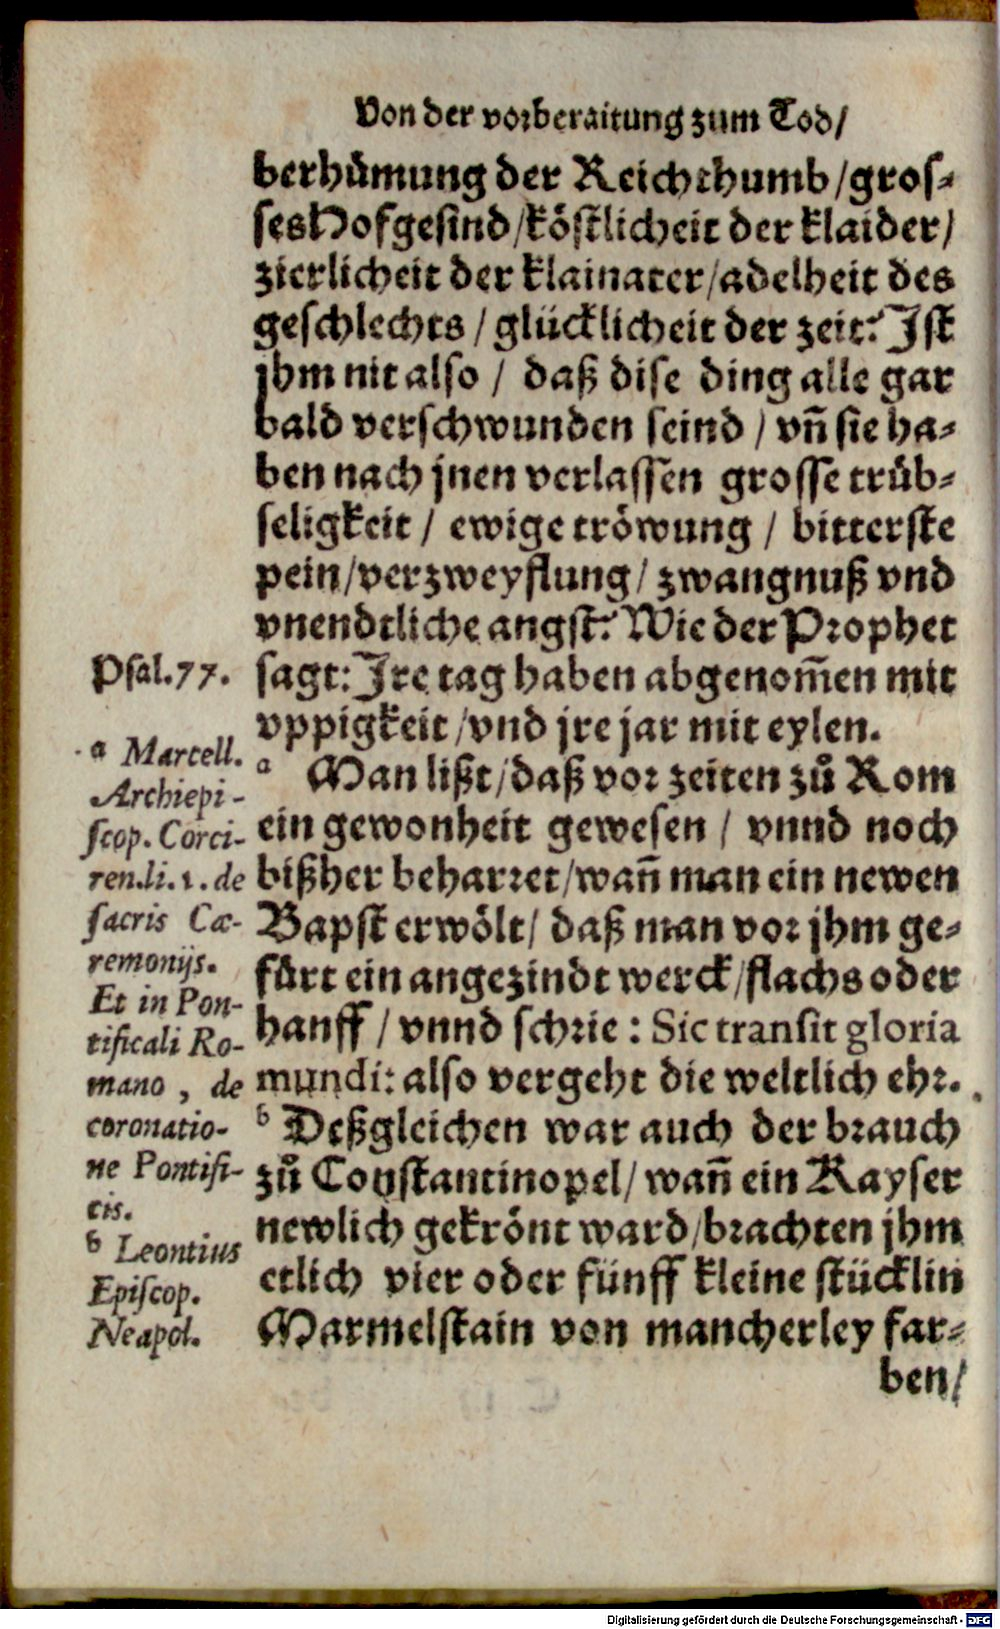 Von der vorberaitung zum Tod/
berhuͤmung der Reichthumb/gros⸗
ses Hofgesind/köstlicheit der klaider/
zierlicheit der klainater/adelheit des
geschlechts / glücklicheit der zeit? Ist
jhm nit also / daß dise ding alle gar
bald verschwunden seind / vñ sie ha⸗
ben nach jnen verlassen grosse truͤb⸗
seligkeit / ewige tröwung / bitterste
pein/verzweyflung/ zwangnuß vnd
vnendtliche angst? Wie der Prophet
sagt: Ire tag haben abgenom̃en mit
vppigkeit/vnd jre jar mit eylen.
a Man lißt/daß vor zeiten zů Rom
ein gewonheit gewesen / vnnd noch
bißher beharret/wañ man ein newen
Bapst erwölt/ daß man vor jhm ge⸗
fürt ein angezindt werck/flachs oder
hanff / vnnd schrie : Sic transit gloria
mundi: also vergeht die weltlich ehr.
b Deßgleichen war auch der brauch
zů Constantinopel/ wañ ein Kayser
newlich gekrönt ward/brachten jhm
etlich vier oder fünff kleine stücklin
Marmelstain von mancherley far⸗
ben/
Psal.77.
a Marcell.
Archiepi-
scop. Corci-
ren.li.1.de
sacris Cæ-
remonijs.
Et in Pon-
tificali Ro-
mano , de
coronatio-
ne Pontifi-
cis.
b Leontius
Episcop.
Neapol.
Digitalisierung gefördert durch die Deutsche Forschungsgemeinschaft - DFG